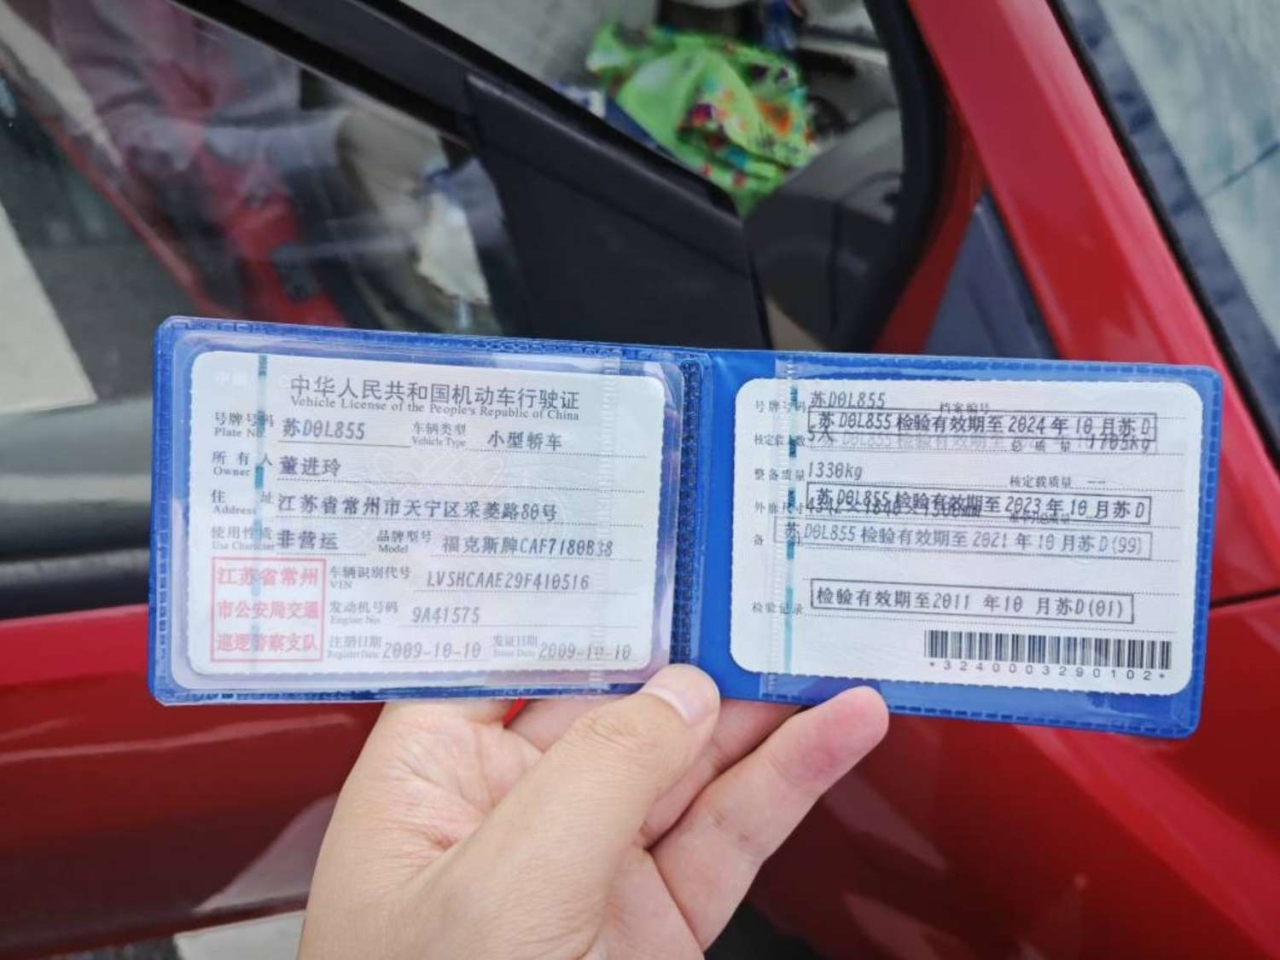 中华人民共和国机动车行驶证
Vehicle License of the People's Republic of China
号牌号码 苏D0L855 车辆类型 小型轿车
Plate No. Vehicle Type
所有人 董进玲
Owner
住址 江苏省常州市天宁区采菱路80号
Address
使用性质 非营运 品牌型号 福克斯牌CAF7180B38
Use Character Model
江苏省常州
市公安局交通
巡逻警察支队
车辆识别代号 LVSHCAAE29F410516
VIN
发动机号码 9A41575
Engine No.
注册日期 2009-10-10 发证日期 2009-10-10
Register Date Issue Date
号牌号码 苏D0L855 档案编号
苏D0L855检验有效期至2024年10月苏D
核定载人数 5人 总质量 1705kg
整备质量 1330kg 核定载质量 --
苏D0L855检验有效期至2023年10月苏D
外廓尺寸
备 苏D0L855检验有效期至2021年10月苏D(99)
检验记录 检验有效期至2011 年10 月苏D(01)
*3240003290102*